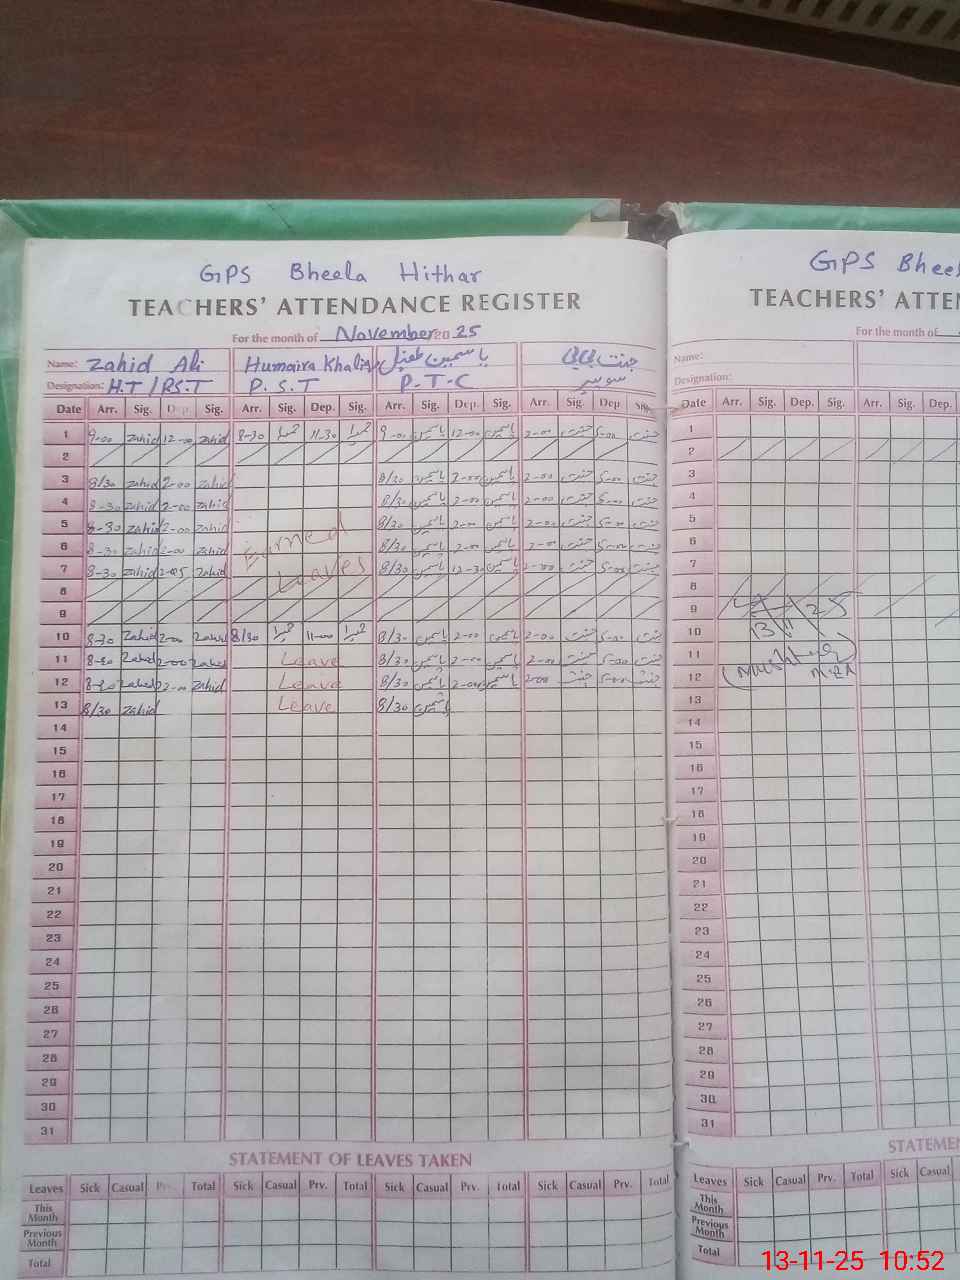 GPS Bheela Hithar
TEACHERS' ATTENDANCE REGISTER
For the month of November 2025
Name: Zahid Ali Humaira Khaliq یاسمین طفیل جنت بی بی
Designation: H.T / P.S.T P.S.T P.T.C سویپر
Date Arr. Sig. Dep. Sig. Arr. Sig. Dep. Sig. Arr. Sig. Dep. Sig. Arr. Sig. Dep Sig.
1 9-00 Zahid 12-00 Zahid 8-30 حمیرا 11-30 حمیرا 9-00 یاسمین 12-00 یاسمین 2-00 جنت 5-00 جنت
2
3 8/30 Zahid 2-00 Zahid 8/30 یاسمین 2-00 یاسمین 2-00 جنت 5-00 جنت
4 8-30 Zahid 2-00 Zahid 8/30 یاسمین 2-00 یاسمین 2-00 جنت 5-00 جنت
5 8-30 Zahid 2-00 Zahid 8/30 یاسمین 2-00 یاسمین 2-00 جنت 5-00 جنت
6 8-30 Zahid 2-00 Zahid Earned 8/30 یاسمین 2-00 یاسمین 2-00 جنت 5-00 جنت
7 8-30 Zahid 2-005 Zahid Leaves 8/30 یاسمین 12-30 یاسمین 2-00 جنت 5-00 جنت
8
9
10 8-30 Zahid 2-00 Zahid 8/30 حمیرا 11-00 حمیرا 8/30 یاسمین 2-00 یاسمین 2-00 جنت 5-00 جنت
11 8-30 Zahid 2-00 Zahid Leave 8/30 یاسمین 2-00 یاسمین 2-00 جنت 5-00 جنت
12 8-30 Zahid 2-00 Zahid Leave 8/30 یاسمین 2-00 یاسمین 2-00 جنت 5-00 جنت
13 8/30 Zahid Leave 8/30 یاسمین
14
15
16
17
18
19
20
21
22
23
24
25
26
27
28
29
30
31
STATEMENT OF LEAVES TAKEN
Leaves Sick Casual Prv. Total Sick Casual Prv. Total Sick Casual Prv. Total Sick Casual Prv. Total
This Month
Previous Month
Total
GPS Bheel
TEACHERS' ATTEN
For the month of
Name:
Designation:
Date Arr. Sig. Dep. Sig. Arr. Sig. Dep.
1
2
3
4
5
6
7
8
9
10 13/11/25
11
12
13
14
15
16
17
18
19
20
21
22
23
24
25
26
27
28
29
30
31
STATEMEN
Leaves Sick Casual Prv. Total Sick Casual
This Month
Previous Month
Total
13-11-25 10:52